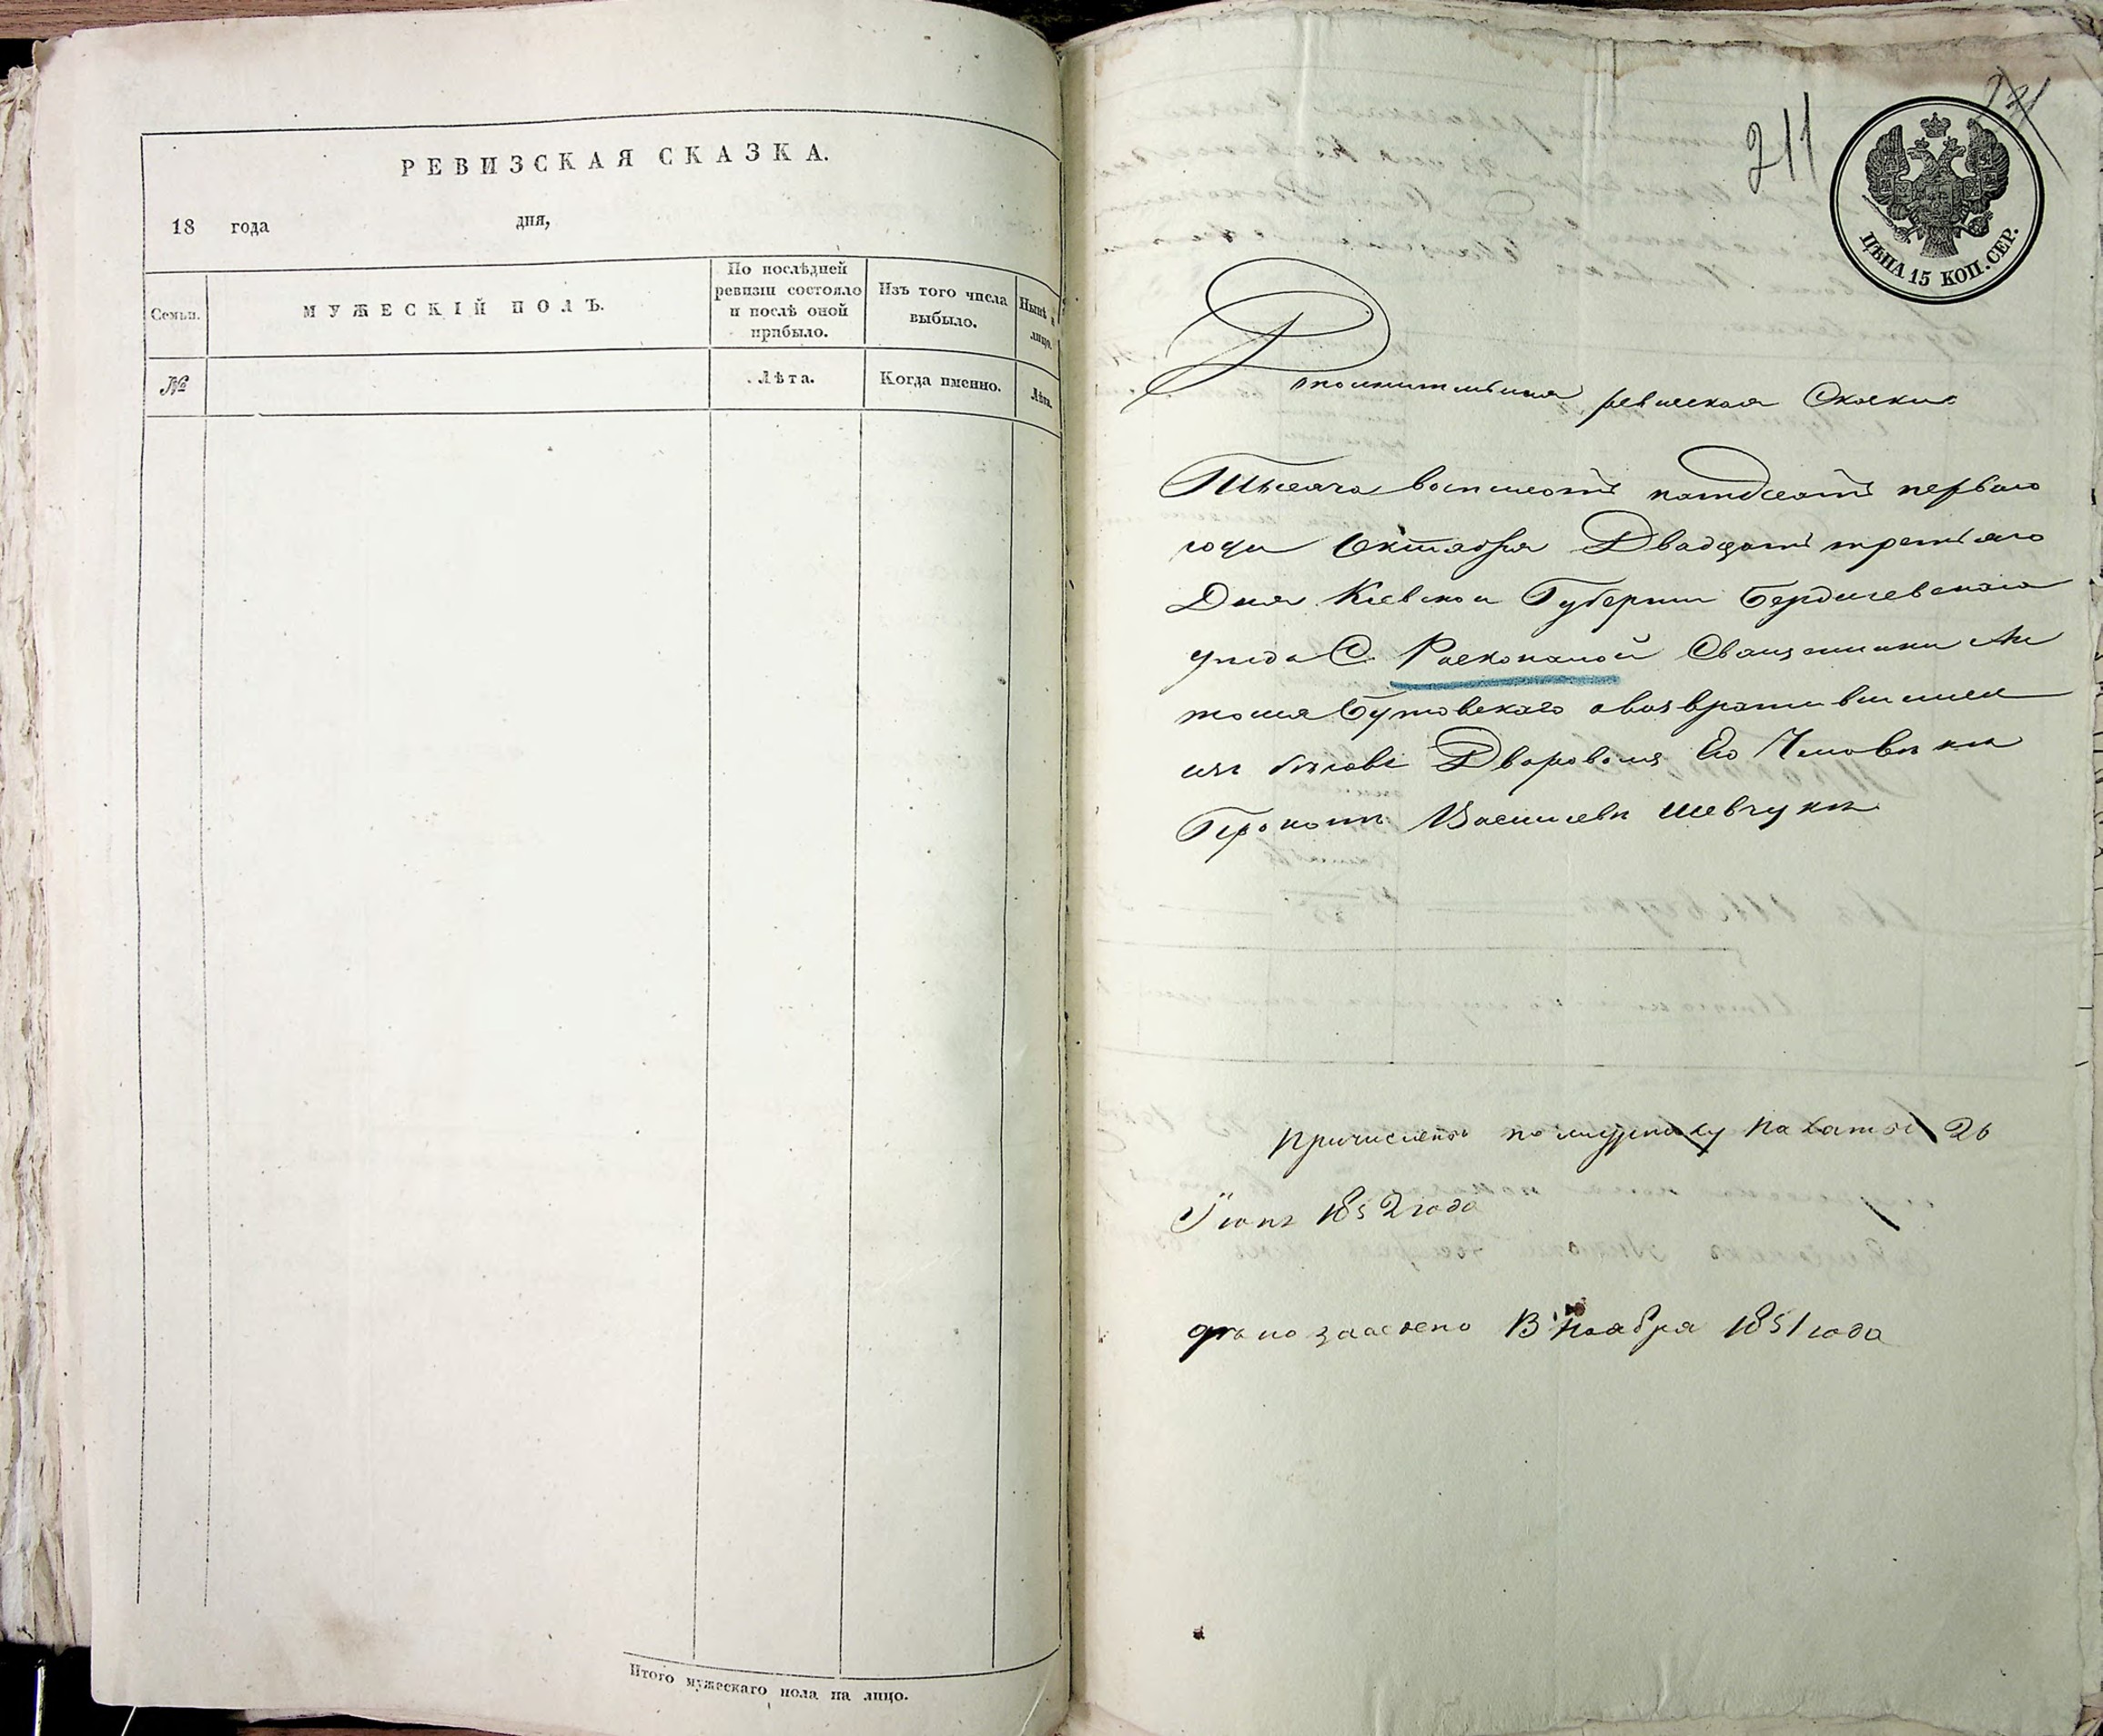 РЕВИЗСКАЯ СКАЗКА.
18 года дня,
Семьи.
МУЖЕСКІЙ ПОЛЪ.
По послѣдней
ревизіи состояло
и послѣ оной
прибыло.
Изъ того числа
выбыло.
Нынѣ
лицо.
№
Лѣта.
Когда именно.
Лѣта.
Итого мужескаго пола на лицо.
211
ЦѢНА 15 КОП. СЕР.
Дполнительная ревиская Скаска
Тысеча восимсотъ патдесятъ первого
года Октября Двадцать третьяго
Дня Кіевской Губерніи Бердичевскаго
уезда С. Раскопаной Священника Ан
тонія Бутовского овозвратившимся
изъ бѣговъ Дворовомъ Его Человѣкѣ
Прокопѣ Васильевѣ Шевчукѣ
Причисленъ по 2б
Іюнь 1852 года
13 Ноября 1851 года